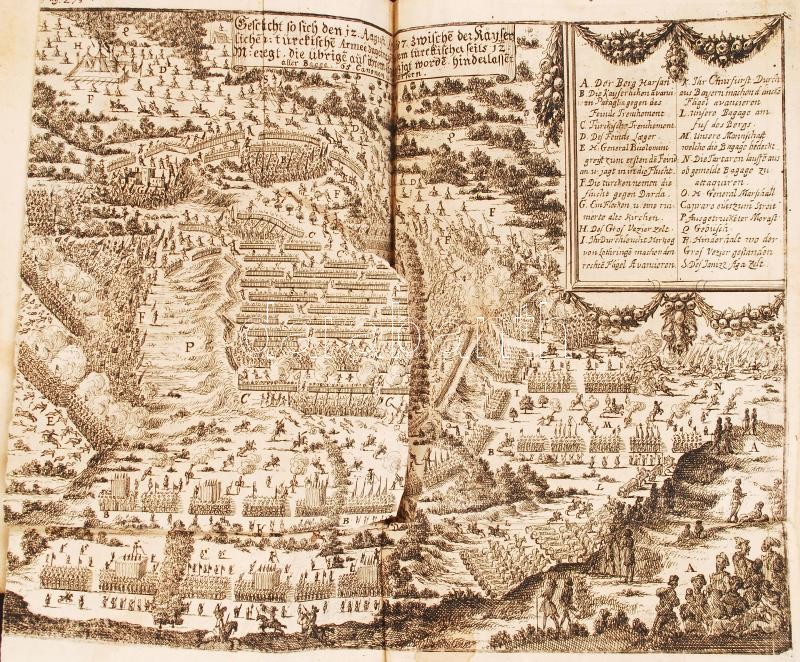 Gefecht so sich den 12. August
97. zwische der Kayser
liche: türckische Armee
em türckischer seits 12.
M: eregt, die übrige aus
igt wordẽ hinderlassen
aller
A Der Berg Harsan
B Die Kayserlichen avanci
in Pataglia gegen des
Feinds Trenchement.
C Türckische Trenchement.
D. Des Feinds Læger.
E H. General Piccolomini
greyft zum ersten dẽ Feind
an u. jagt in in die Flucht.
F. Die türcken nemen die
flucht gegen Darda.
G. Ein Flecken u. eine rui
nierte alte kirchen.
H. Des Gros Vezier zelt.
I. Ihr Durchleucht Hertzog
von Lothringẽ machen den
rechtẽ Flügel Avancieren.
K Ihr Churfürst Durchl:
aus Bayern machen d lincke
Flügel avancieren
L. unsere Bagage am
fus des Bergs.
M. unsere Mannschaft
welche die Bagage bedeckt.
N. Die Tartaren lauffẽ aus
ob gemelde Bagage zu
attaquiren.
O. H. General Marschalt
Caprara eilet zum Streit
P. Ausgetruckẽter Morast
Q Gebüsch.
R. Hinderhalt wo der
Gros Vezier gestanden
S. Des Janizr. Aga Zelt.
H
F
D
Q
K D
F
P
C
C
E
I
N
M
B
A
B
K
A